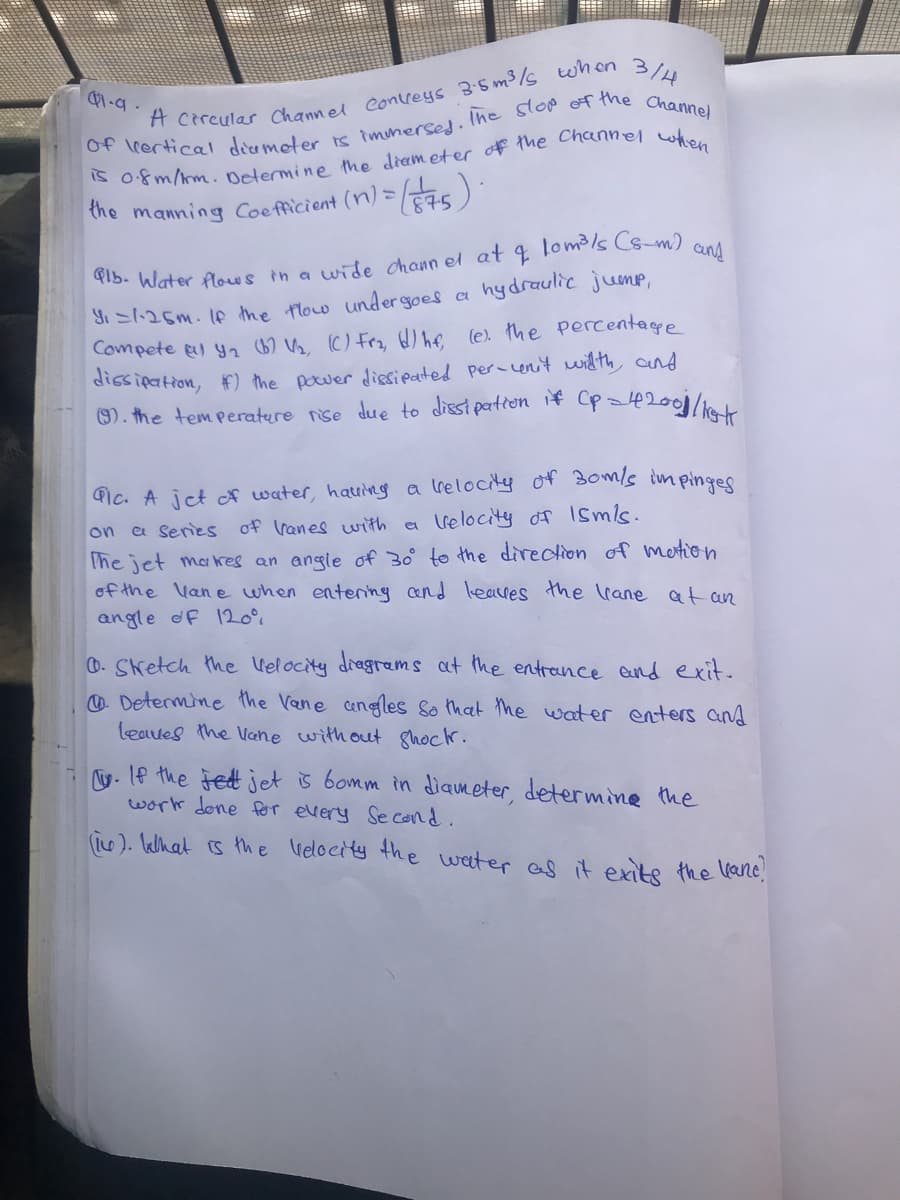 Q1.a. A Circular Channel conveys 3.5 m³/s when 3/4
of vertical diameter is immersed. The slop of the Channel
is 0.8m/km. Determine the diameter of the Channel when
the manning Coefficient (n) = (1/87.5).
Q1b. Water flows in a wide channel at q 10m³/s (s-m) and
y₁ = 1.25m. If the flow undergoes a hydraulic jump,
Compute (a) y₂ (b) V₂, (c) Fr₂, (d) hf, (e). the percentage
dissipation, (f) the power dissipated per-unit width, and
(g). the temperature rise due to dissipation if Cp = 4200J/kg-k
Q1c. A jet of water, having a velocity of 30m/s impinges
on a series of vanes with a velocity of 15m/s.
The jet makes an angle of 30° to the direction of motion
of the vane when entering and leaves the vane at an
angle of 120°.
(i). Sketch the velocity diagrams at the entrance and exit.
(ii). Determine the vane angles so that the water enters and
leaves the vane without shock.
(iii). If the jet is 60mm in diameter, determine the
work done for every Second.
(iv). What is the velocity the water as it exits the vane?